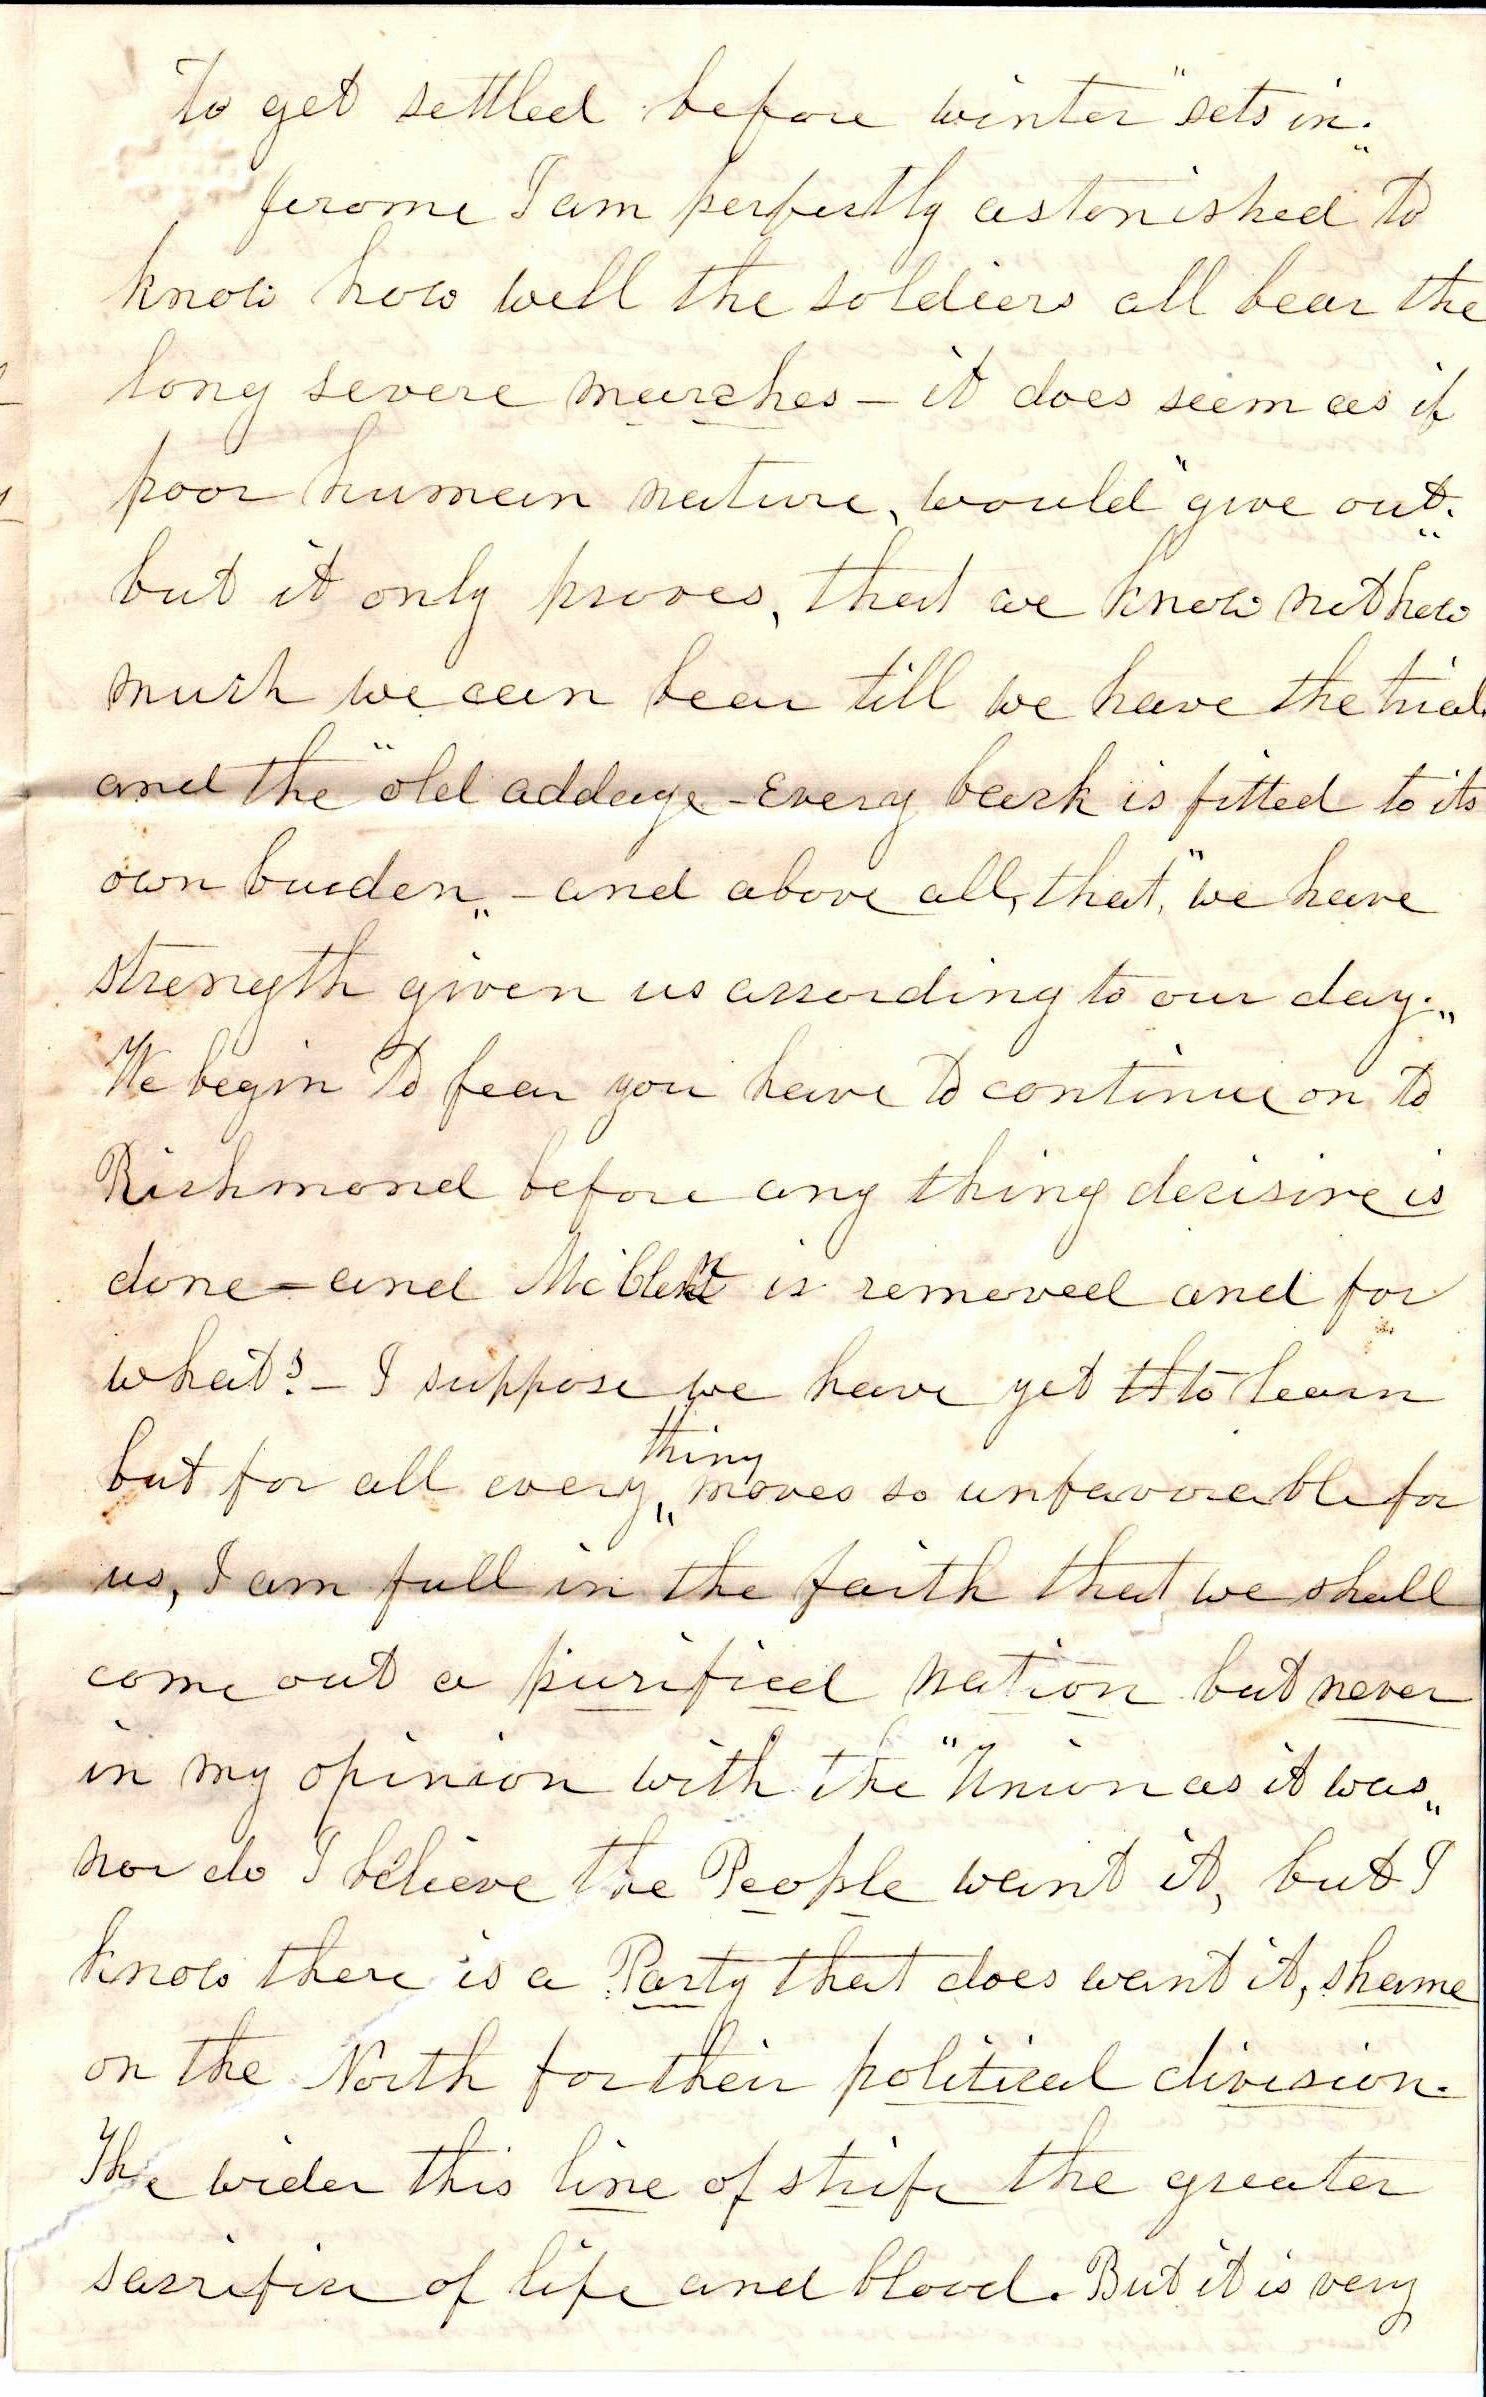 To get settled before winter "sets in."
Jerome I am perfectly astonished to
know how well the soldiers all bear the
long severe marches – it does seem as if
poor human nature, would "give out."
but it only proves, that we know not how
much we can bear till we have the trial
and the "old addage – Every back is fitted to its
own burden" – and above all, that, "we have
strength given us according to our day."
We begin to fear you have to continue on to
Richmond before any thing decisive is
done – and McClen is removed and for
what? – I suppose we have yet th to learn
but for all every thing moves so unfavorable for
us, I am full in the faith that we shall
come out a purified nation but never
in my opinion with the "Union as it was"
nor do I believe the People want it, but I
know there is a Party that does want it, shame
on the North for their political division.
The wider this line of strife the greater
sacrifice of life and blood. But it is very